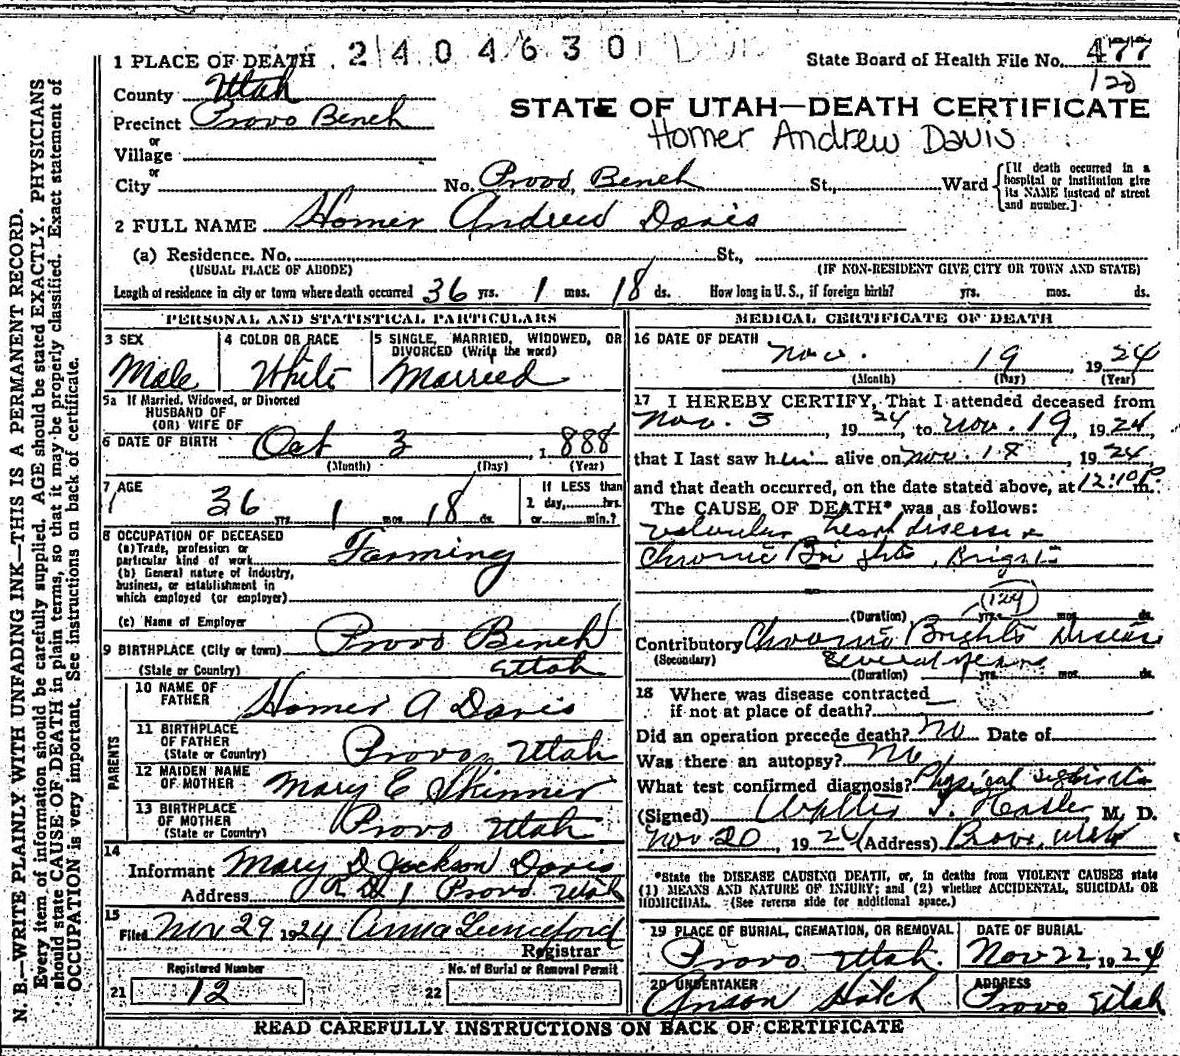 1 PLACE OF DEATH 2404630
State Board of Health File No. 477
120
County Utah
Precinct Provo Bench
STATE OF UTAH—DEATH CERTIFICATE
Homer Andrew Davis
or
Village
or
City No. Provo, Bench St., Ward
[If death occurred in a hospital or institution give its NAME instead of street and number.]
2 FULL NAME Homer Andrew Davis
(a) Residence. No. St.,
(USUAL PLACE OF ABODE) (IF NON-RESIDENT GIVE CITY OR TOWN AND STATE)
Length of residence in city or town where death occurred 36 yrs. 1 mos. 18 ds. How long in U. S., if foreign birth? yrs. mos. ds.
PERSONAL AND STATISTICAL PARTICULARS
3 SEX
Male
4 COLOR OR RACE
White
5 SINGLE, MARRIED, WIDOWED, OR DIVORCED (Write the word)
Married
5a If Married, Widowed, or Divorced
HUSBAND OF
(OR) WIFE OF
6 DATE OF BIRTH Oct 3, 1888
(Month) (Day) (Year)
7 AGE
36 yrs. 1 mos. 18 ds.
If LESS than
1 day, hrs.
or min.?
8 OCCUPATION OF DECEASED
(a) Trade, profession or
particular kind of work Farming
(b) General nature of Industry,
business, or establishment in
which employed (or employer)
(c) Name of Employer
9 BIRTHPLACE (City or town) Provo Bench
(State or Country) Utah
PARENTS
10 NAME OF FATHER Homer A Davis
11 BIRTHPLACE OF FATHER (State or Country) Provo, Utah
12 MAIDEN NAME OF MOTHER Mary E Skinner
13 BIRTHPLACE OF MOTHER (State or Country) Provo Utah
14
Informant Mary D Jackson Davis
Address R D 1 Provo Utah
15
Filed Nov 29 1924
Registrar
Registered Number
21 12
No. of Burial or Removal Permit
22
MEDICAL CERTIFICATE OF DEATH
16 DATE OF DEATH
Nov. 19, 1924
(Month) (Day) (Year)
17 I HEREBY CERTIFY, That I attended deceased from
Nov. 3, 1924, to Nov. 19, 1924,
that I last saw him alive on Nov. 18, 1924
and that death occurred, on the date stated above, at 12:10 P m.
The CAUSE OF DEATH* was as follows:
Valvular heart disease &
Chronic Brights, Brights
(129)
(Duration) yrs. mos. ds.
Contributory Chronic Brights Disease
(Secondary) Several years
(Duration) yrs. mos. ds.
18 Where was disease contracted
if not at place of death?
Did an operation precede death? No Date of
Was there an autopsy? No
What test confirmed diagnosis? Physical
(Signed) Walter T. Hasler, M. D.
Nov 20, 1924 (Address) Provo, Utah
*State the DISEASE CAUSING DEATH, or, in deaths from VIOLENT CAUSES state
(1) MEANS AND NATURE OF INJURY; and (2) whether ACCIDENTAL, SUICIDAL OR
HOMICIDAL. (See reverse side for additional space.)
19 PLACE OF BURIAL, CREMATION, OR REMOVAL
Provo Utah.
DATE OF BURIAL
Nov 22, 1924
20 UNDERTAKER
Anson Hatch
ADDRESS
Provo Utah
READ CAREFULLY INSTRUCTIONS ON BACK OF CERTIFICATE
N. B.—WRITE PLAINLY WITH UNFADING INK—THIS IS A PERMANENT RECORD.
Every item of information should be carefully supplied. AGE should be stated EXACTLY. PHYSICIANS
should state CAUSE OF DEATH in plain terms, so that it may be properly classified. Exact statement of
OCCUPATION is very important. See instructions on back of certificate.